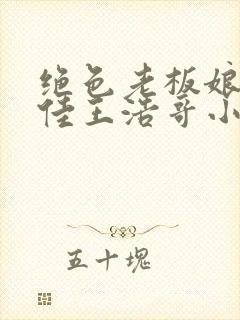 绝色老板娘
佳王浩哥小
五十块